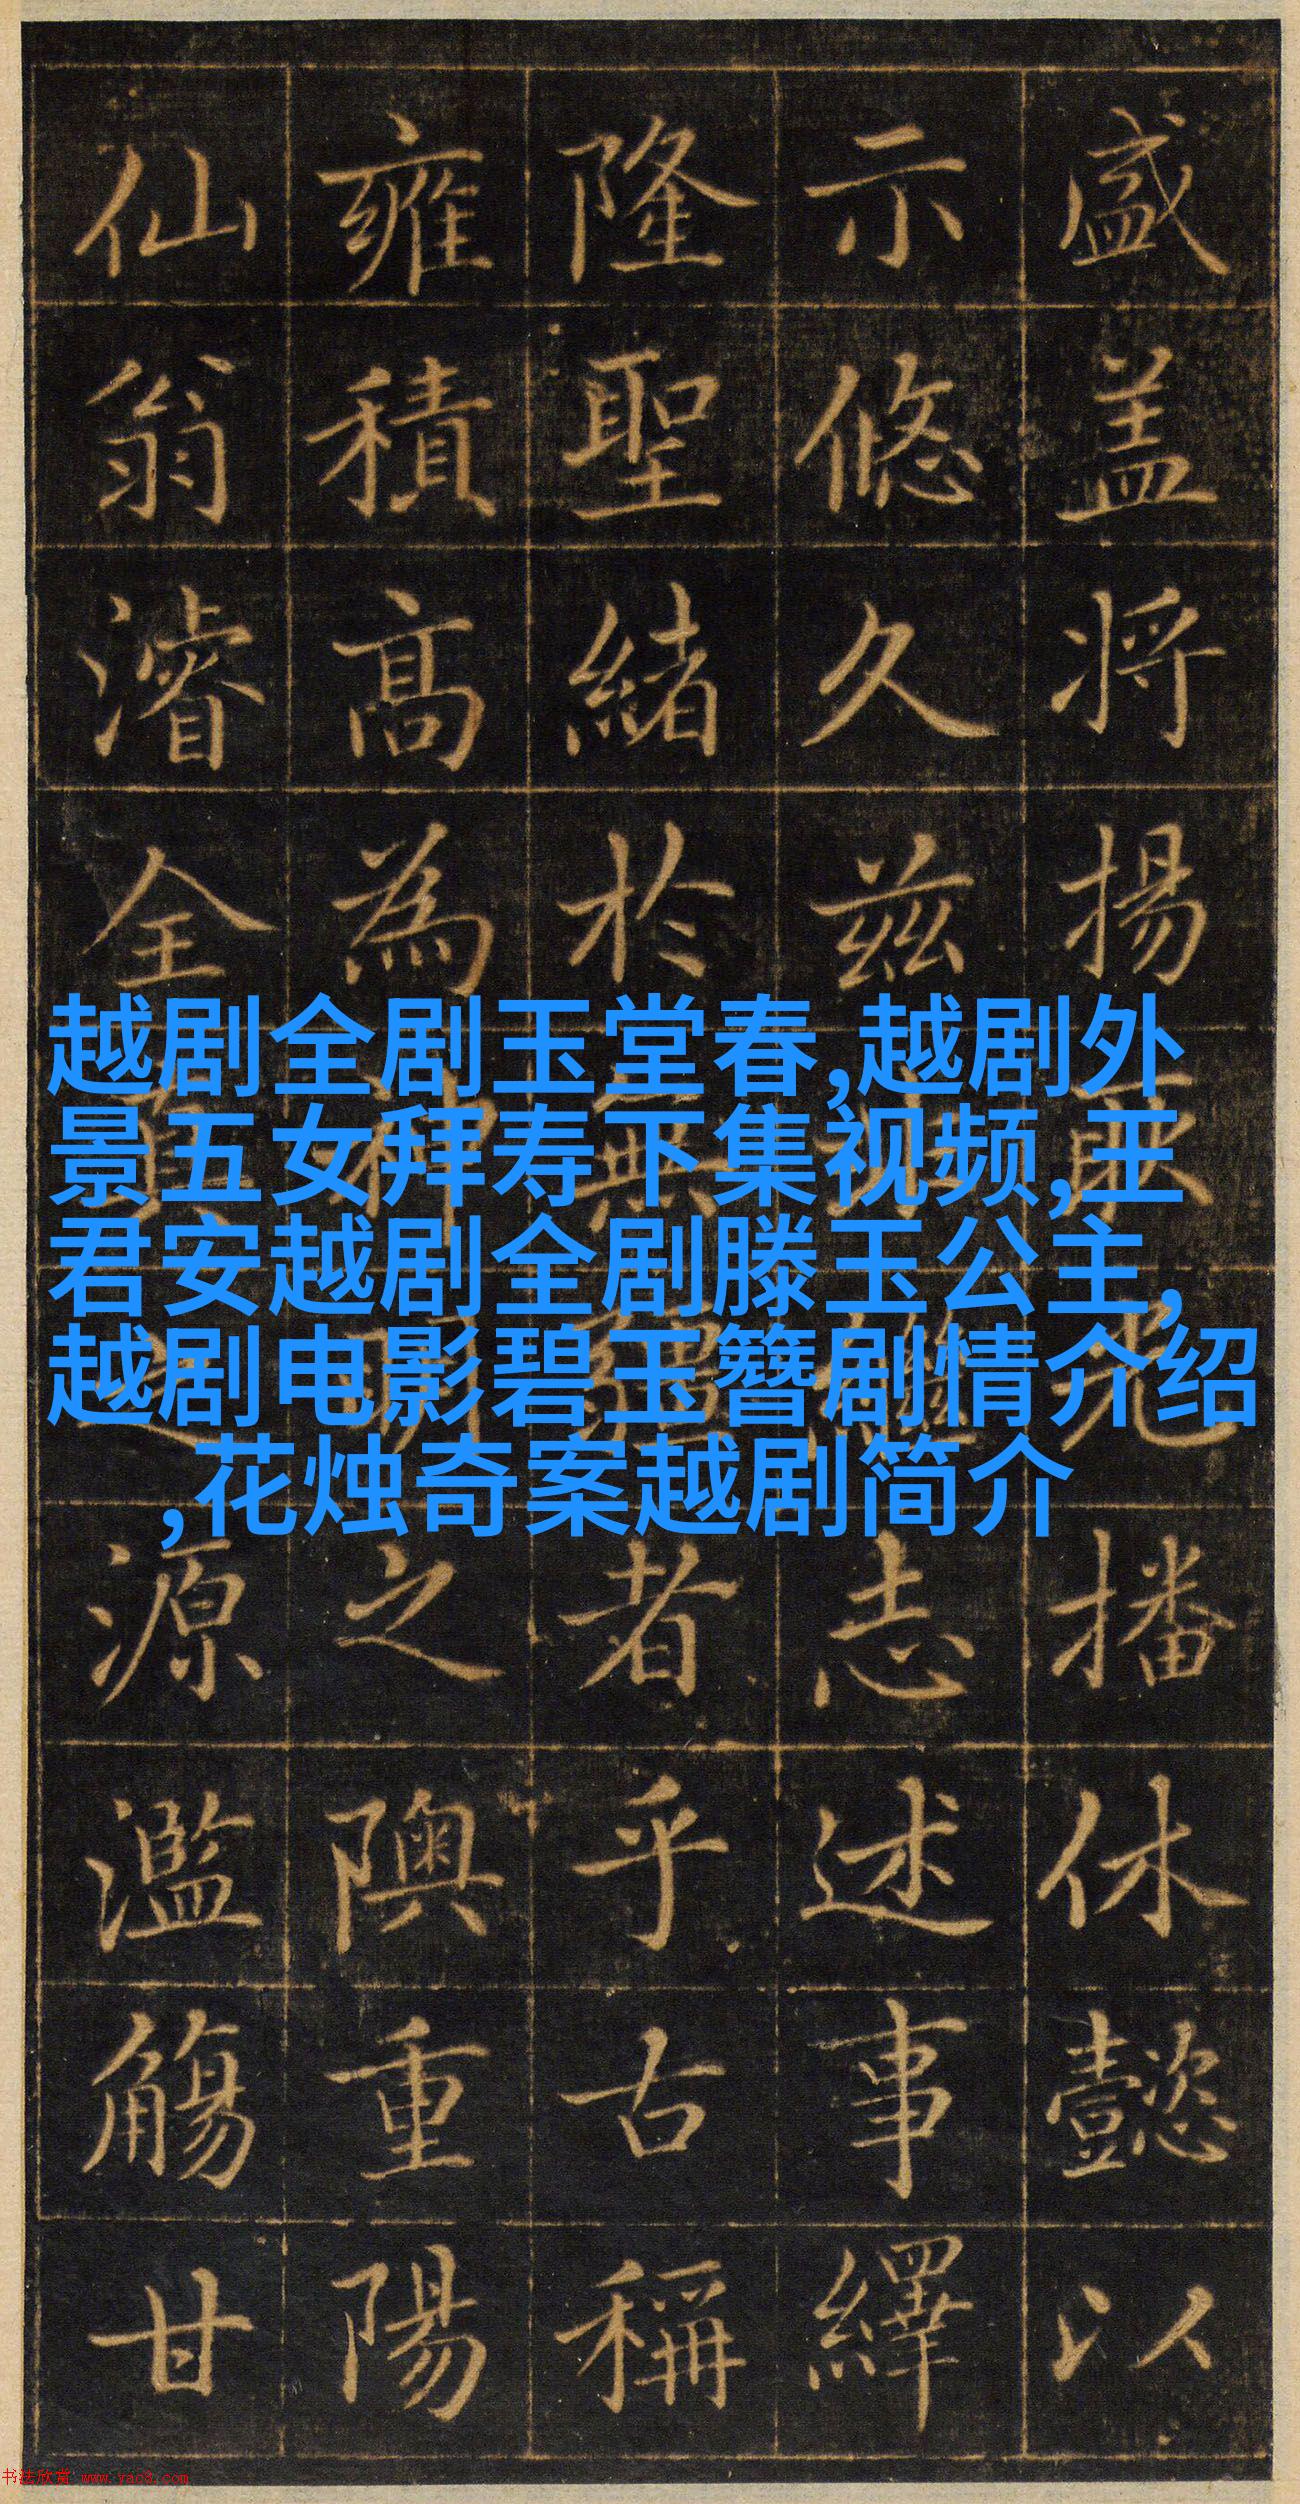 盛盖将揚耿光播休懿以
示悠久兹繼志述事繹
隆聖緒於無疆者乎古稱
雍積高為神明之隩重陽
仙翁濬全真之源濫觴甘
越剧全剧玉堂春,越剧外
景五女拜寿下集视频,王
君安越剧全剧滕玉公主,
越剧电影碧玉簪剧情介绍
,花烛奇案越剧简介
书法欣赏 www.yac8.com